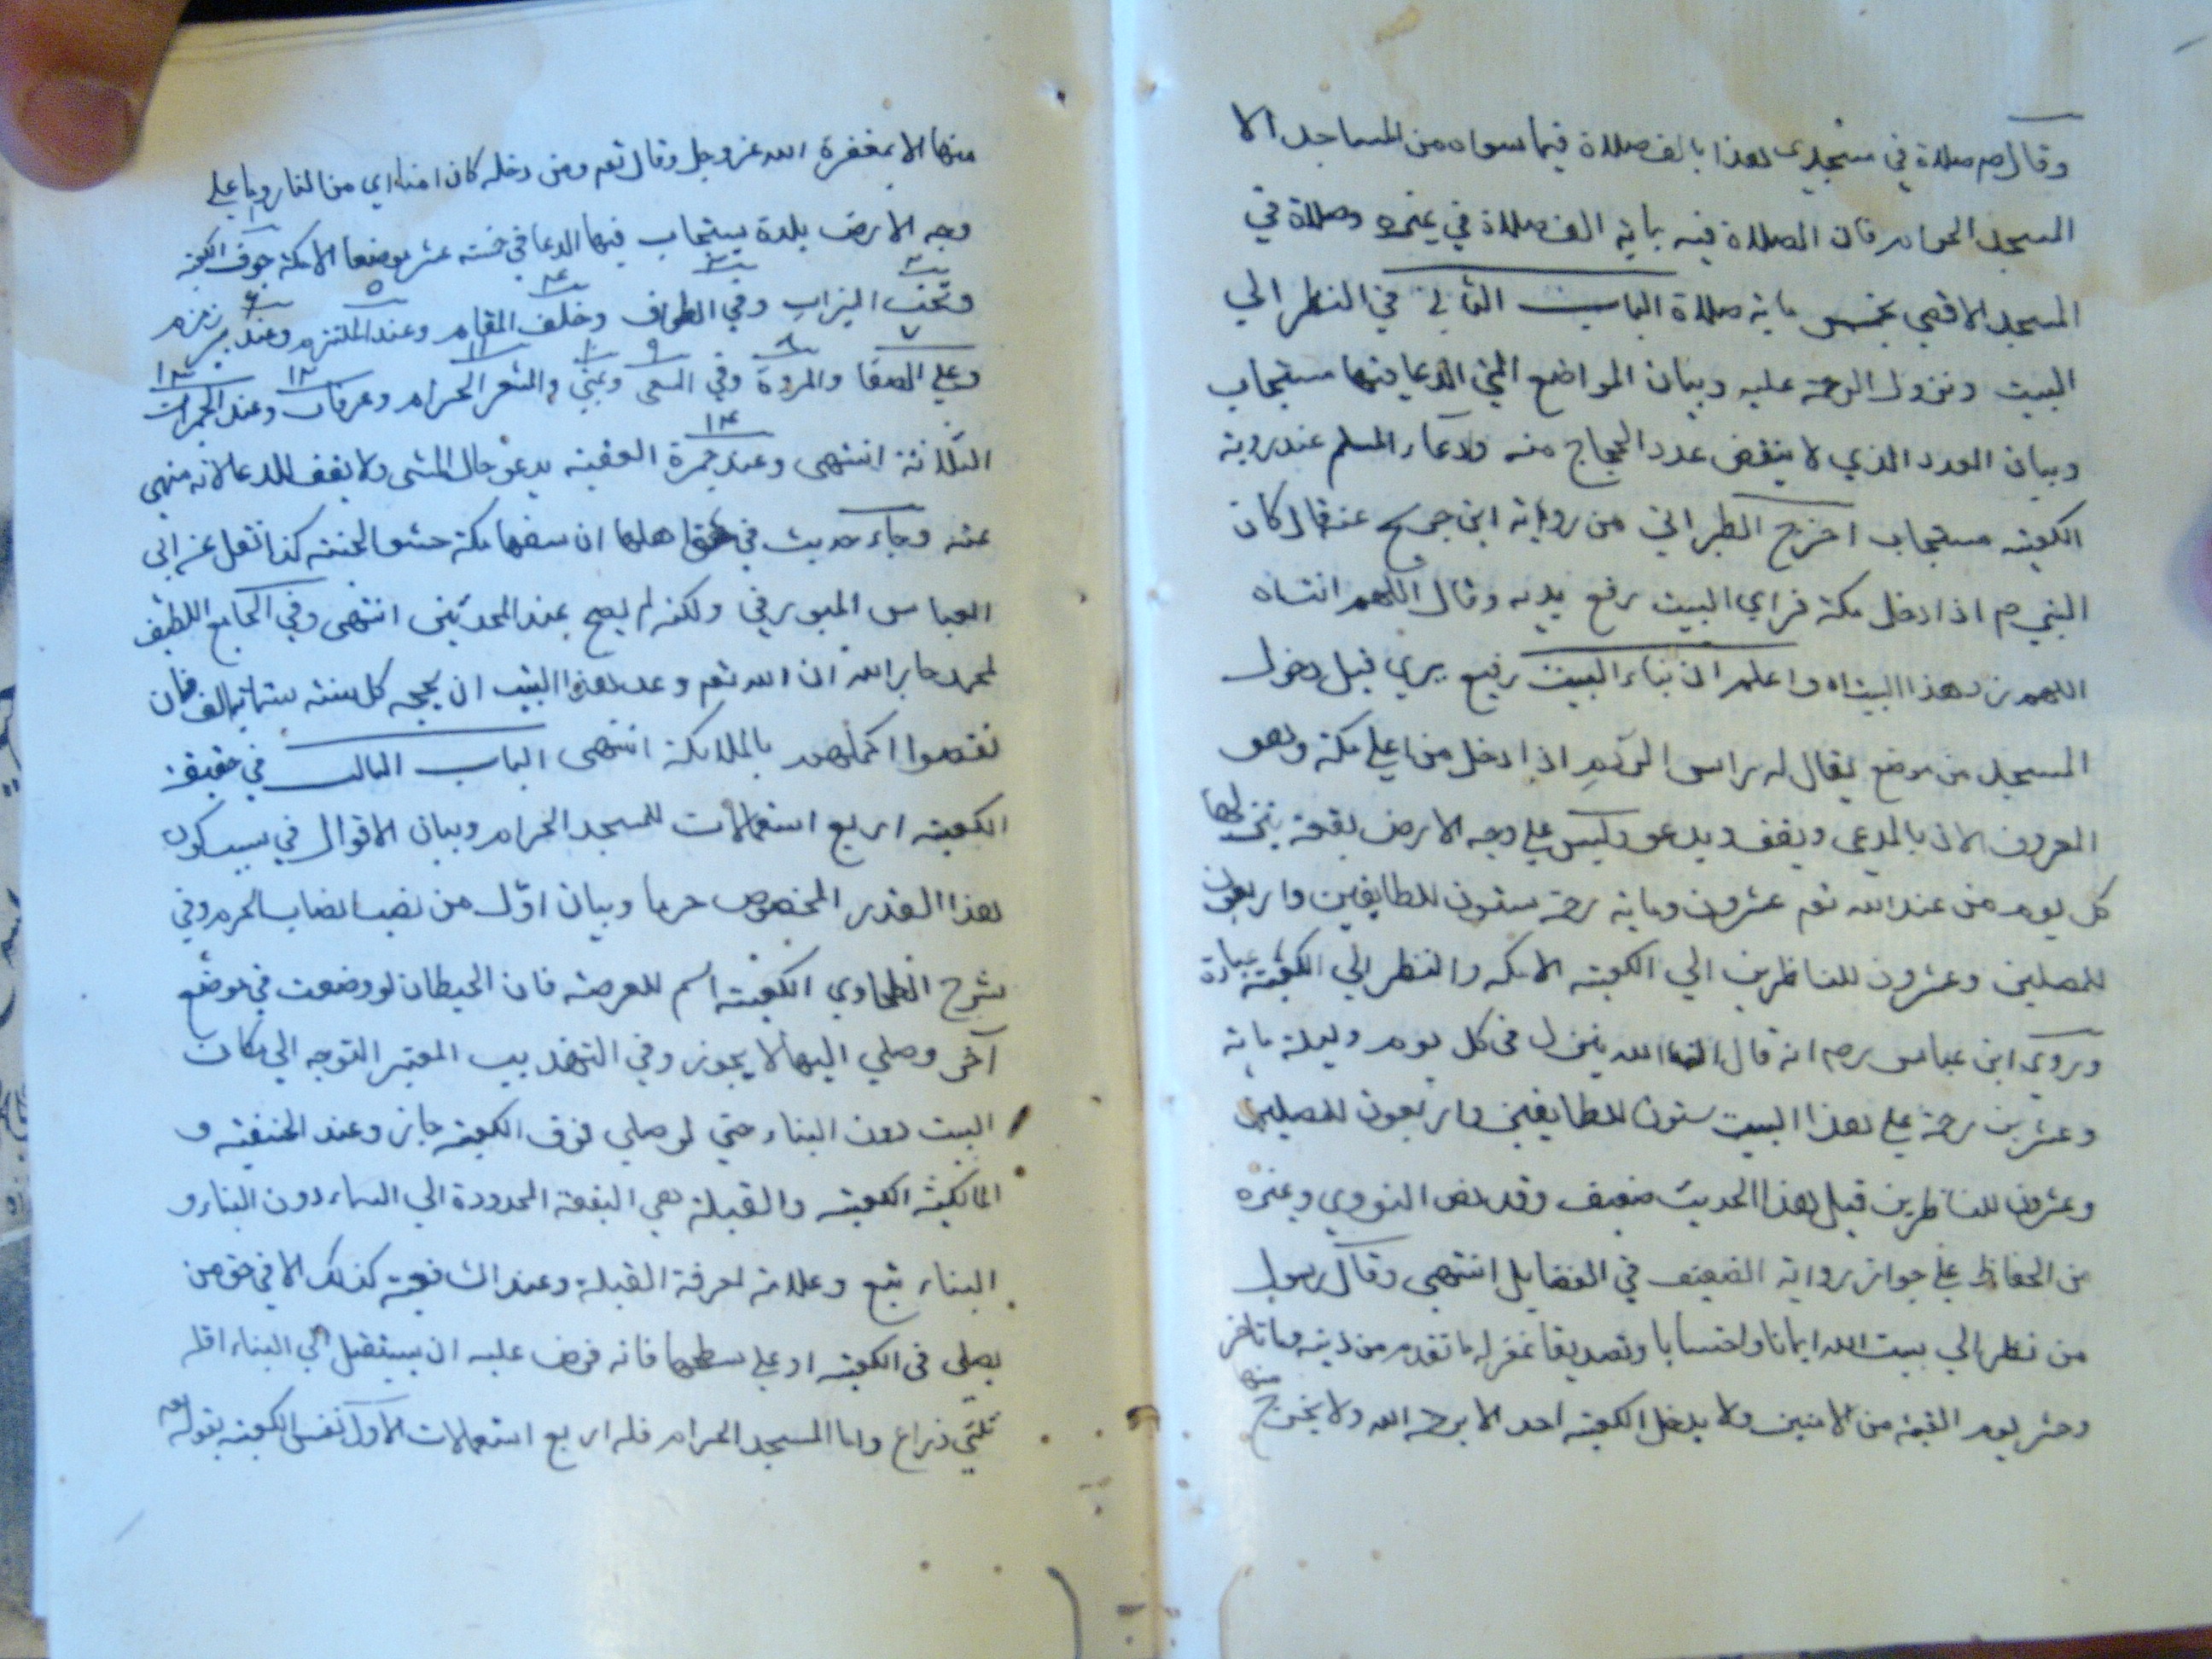 وقال صم صلاة في مسجدي هذا بالف صلاة فيما سواه من المساجد الا
المسجد الحرام فان الصلاة فيه بماية الف صلاة في غيره وصلاة في
المسجد الاقصي بخمس ماية صلاة الباب الثاني في النظر الي
البيت ونزول الرحمة عليه وبيان المواضع التي الدعا فيها مستجاب
وبيان العدد الذي لا ينقص عدد الحجاج منه ودعاء المسلم عند روية
الكعبة مستجاب اخرج الطبراني من رواية ابن جريج عنه قال كان
النبي صم اذا دخل مكة فراي البيت رفع يديه وقال اللهم انت
اللهم زد هذا البيت واعلم ان بناء البيت رفيع يري قبل دخول
المسجد من موضع يقال له راس الردم اذا دخل من اعلي مكة وهو
المعروف الان بالمدعي ويقف ويدعو وليس علي وجه الارض بقعة ينزل لها
كل يوم من عند الله تعم عشرون وماية رحمة ستون للطايفين واربعون
للمصلين وعشرون للناظرين الي الكعبة الا مكه والنظر الي الكعبة عبادة
وروي ابن عباس رصم انه قال الله ينزل في كل يوم وليلة ماية
وعشرين رحمة علي هذا البيت ستون للطايفين واربعون للمصلين
وعشرون للناظرين قيل هذا الحديث ضعيف وقد نص النووي وغيره
من الحفاظ علي جواز رواية الضعيف في الفضايل انتهي وقال رسول
من نظر الي بيت الله ايمانا واحتسابا وتصديقا غفر له ما تقدم من ذنبه وما تاخر
وحشر يوم القيمة من الامنين ولا يدخل الكعبة احد الا برحمة الله ولا يخرج
منها
منها الا بمغفرة الله عز وجل وقال تعم ومن دخله كان امنا اي من النار وما علي
وجه الارض بلدة يستجاب فيها الدعا في خمسة عشر موضعا الا مكة جوف الكعبة
وتحت الميزاب وفي الطواف وخلف المقام وعند الملتزم وعند بير زمزم
وعلي الصفا والمروة وفي المسعي وبمني والمشعر الحرام وعرفات وعند الجمرات
الثلاثة انتهي وعند جمرة العقبة يدعو حال المشي ولا يقف للدعا لانه منهي
عنه وجاء حديث في حق اهلها ان سفهاء مكة حشو الجنة كذا نقل عن ابي
العباس الميورقي ولكنه لم يصح عند المحدثين انتهي وفي الجامع اللطيف
لمحمد جار الله ان الله تعم وعد هذا البيت ان يحجه كل سنة ستماية الف فان
نقصوا اكملهم بالملايكة انتهي الباب الثالث في حقيقة
الكعبة اربع استعمالات للمسجد الحرام وبيان الاقوال في سبب كون
هذا القدر المخصوص حرما وبيان اول من نصب انصاب الحرم وفي
شرح الطحاوي الكعبة اسم للعرصة فان الحيطان لو وضعت في موضع
آخر وصلي اليها لا يجوز وفي التهذيب المعتبر التوجه الي مكان
البيت دون البناء حتي لو صلي فوق الكعبة جاز وعند الحنفية و
المالكية الكعبة والقبلة هي البقعة المحدودة الي السماء دون البناء و
البناء تبع وعلامة لمعرفة القبلة وعند الشافعية كذلك الا في حق من
يصلي في الكعبة او علي سطحها فانه فرض عليه ان يستقبل الي البناء اقله
ثلثي ذراع واما المسجد الحرام فله اربع استعمالات الاول نفس الكعبة بقوله تعم